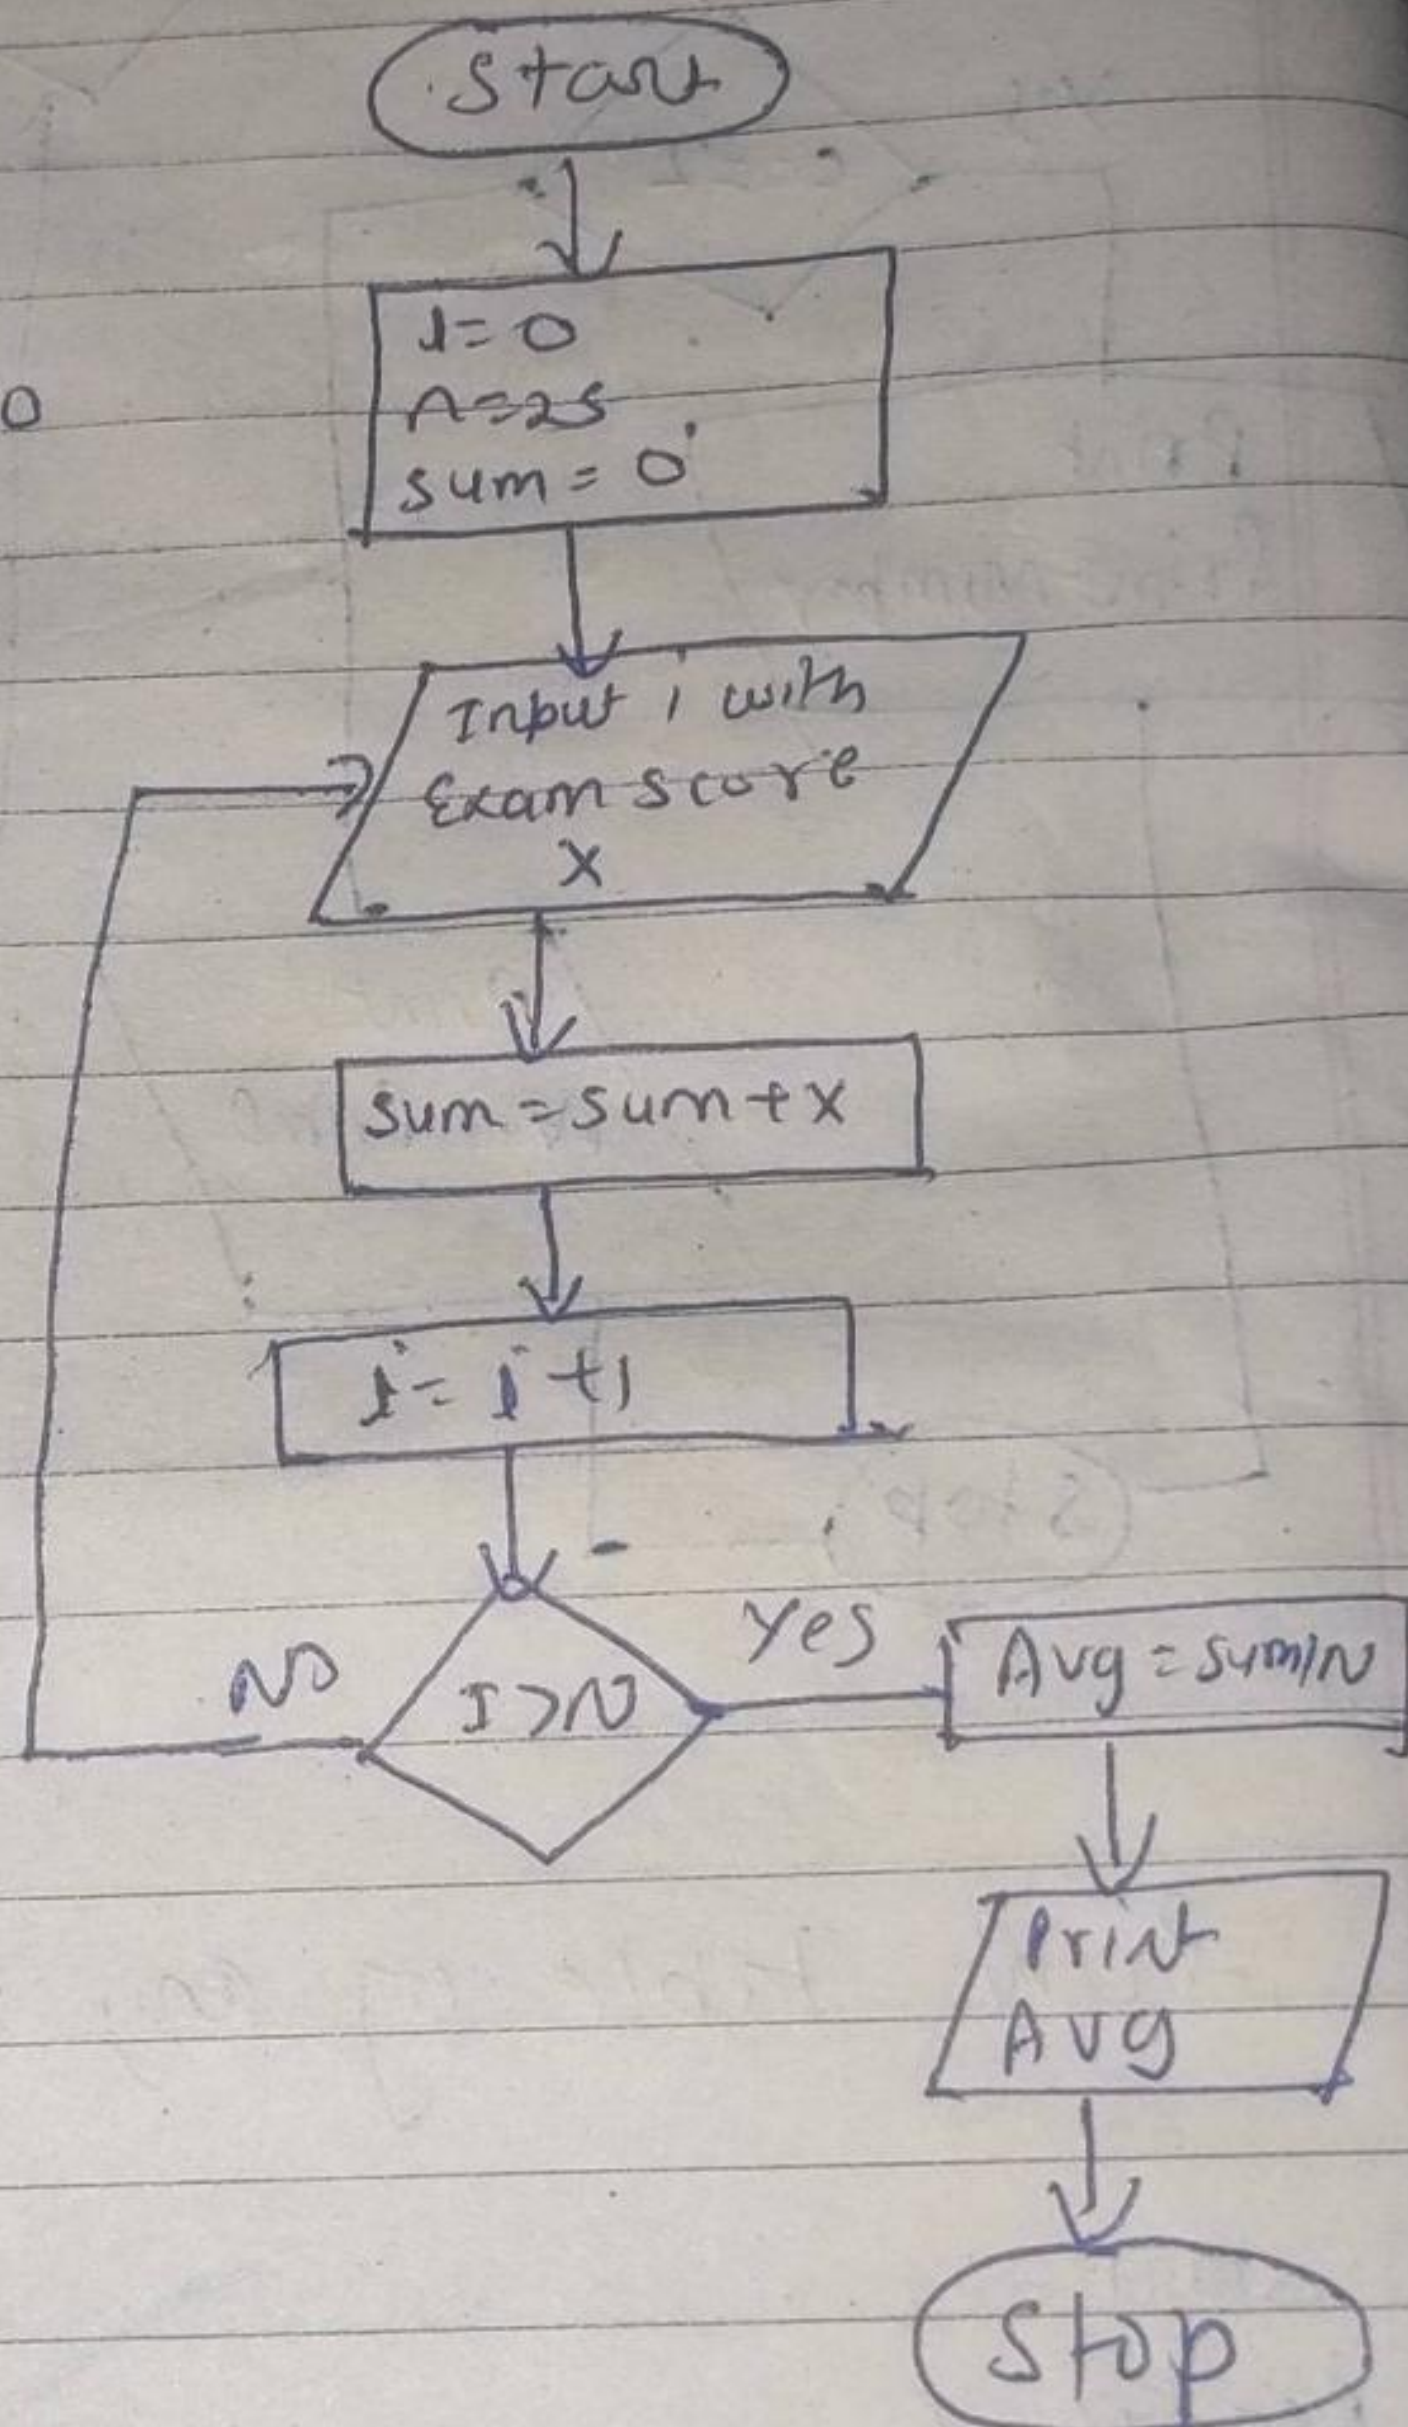 Start
0
i=0
n=25
sum=0
Input i with
Exam score
X
sum=sum+x
i=i+1
I>N
NO
Yes
Avg=sum/N
Print
Avg
Stop